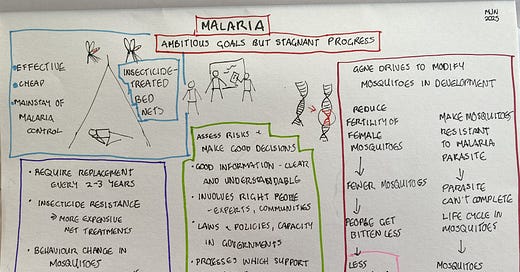 MJW
2025
MALARIA
AMBITIOUS GOALS BUT STAGNANT PROGRESS
EFFECTIVE
CHEAP
MAINSTAY OF
MALARIA
CONTROL
INSECTICIDE-
TREATED
BED
NETS
REQUIRE REPLACEMENT
EVERY 2-3 YEARS
INSECTICIDE RESISTANCE
⇒ MORE EXPENSIVE
NET TREATMENTS
BEHAVIOUR CHANGE IN
MOSQUITOES
ASSESS RISKS +
MAKE GOOD DECISIONS
GOOD INFORMATION - CLEAR
AND UNDERSTANDABLE
INVOLVES RIGHT PEOPLE
- EXPERTS, COMMUNITIES
LAWS + POLICIES, CAPACITY
IN GOVERNMENTS
PROCESSES WHICH SUPPORT
GENE DRIVES TO MODIFY
MOSQUITOES IN DEVELOPMENT
REDUCE
FERTILITY OF
FEMALE
MOSQUITOES
↓
FEWER MOSQUITOES
↓
PEOPLE GET
BITTEN LESS
↓
LESS
MAKE MOSQUITOES
RESISTANT
TO MALARIA
PARASITE
↓
PARASITE
CAN'T COMPLETE
LIFE CYCLE IN
MOSQUITOES
↓
MOSQUITOES